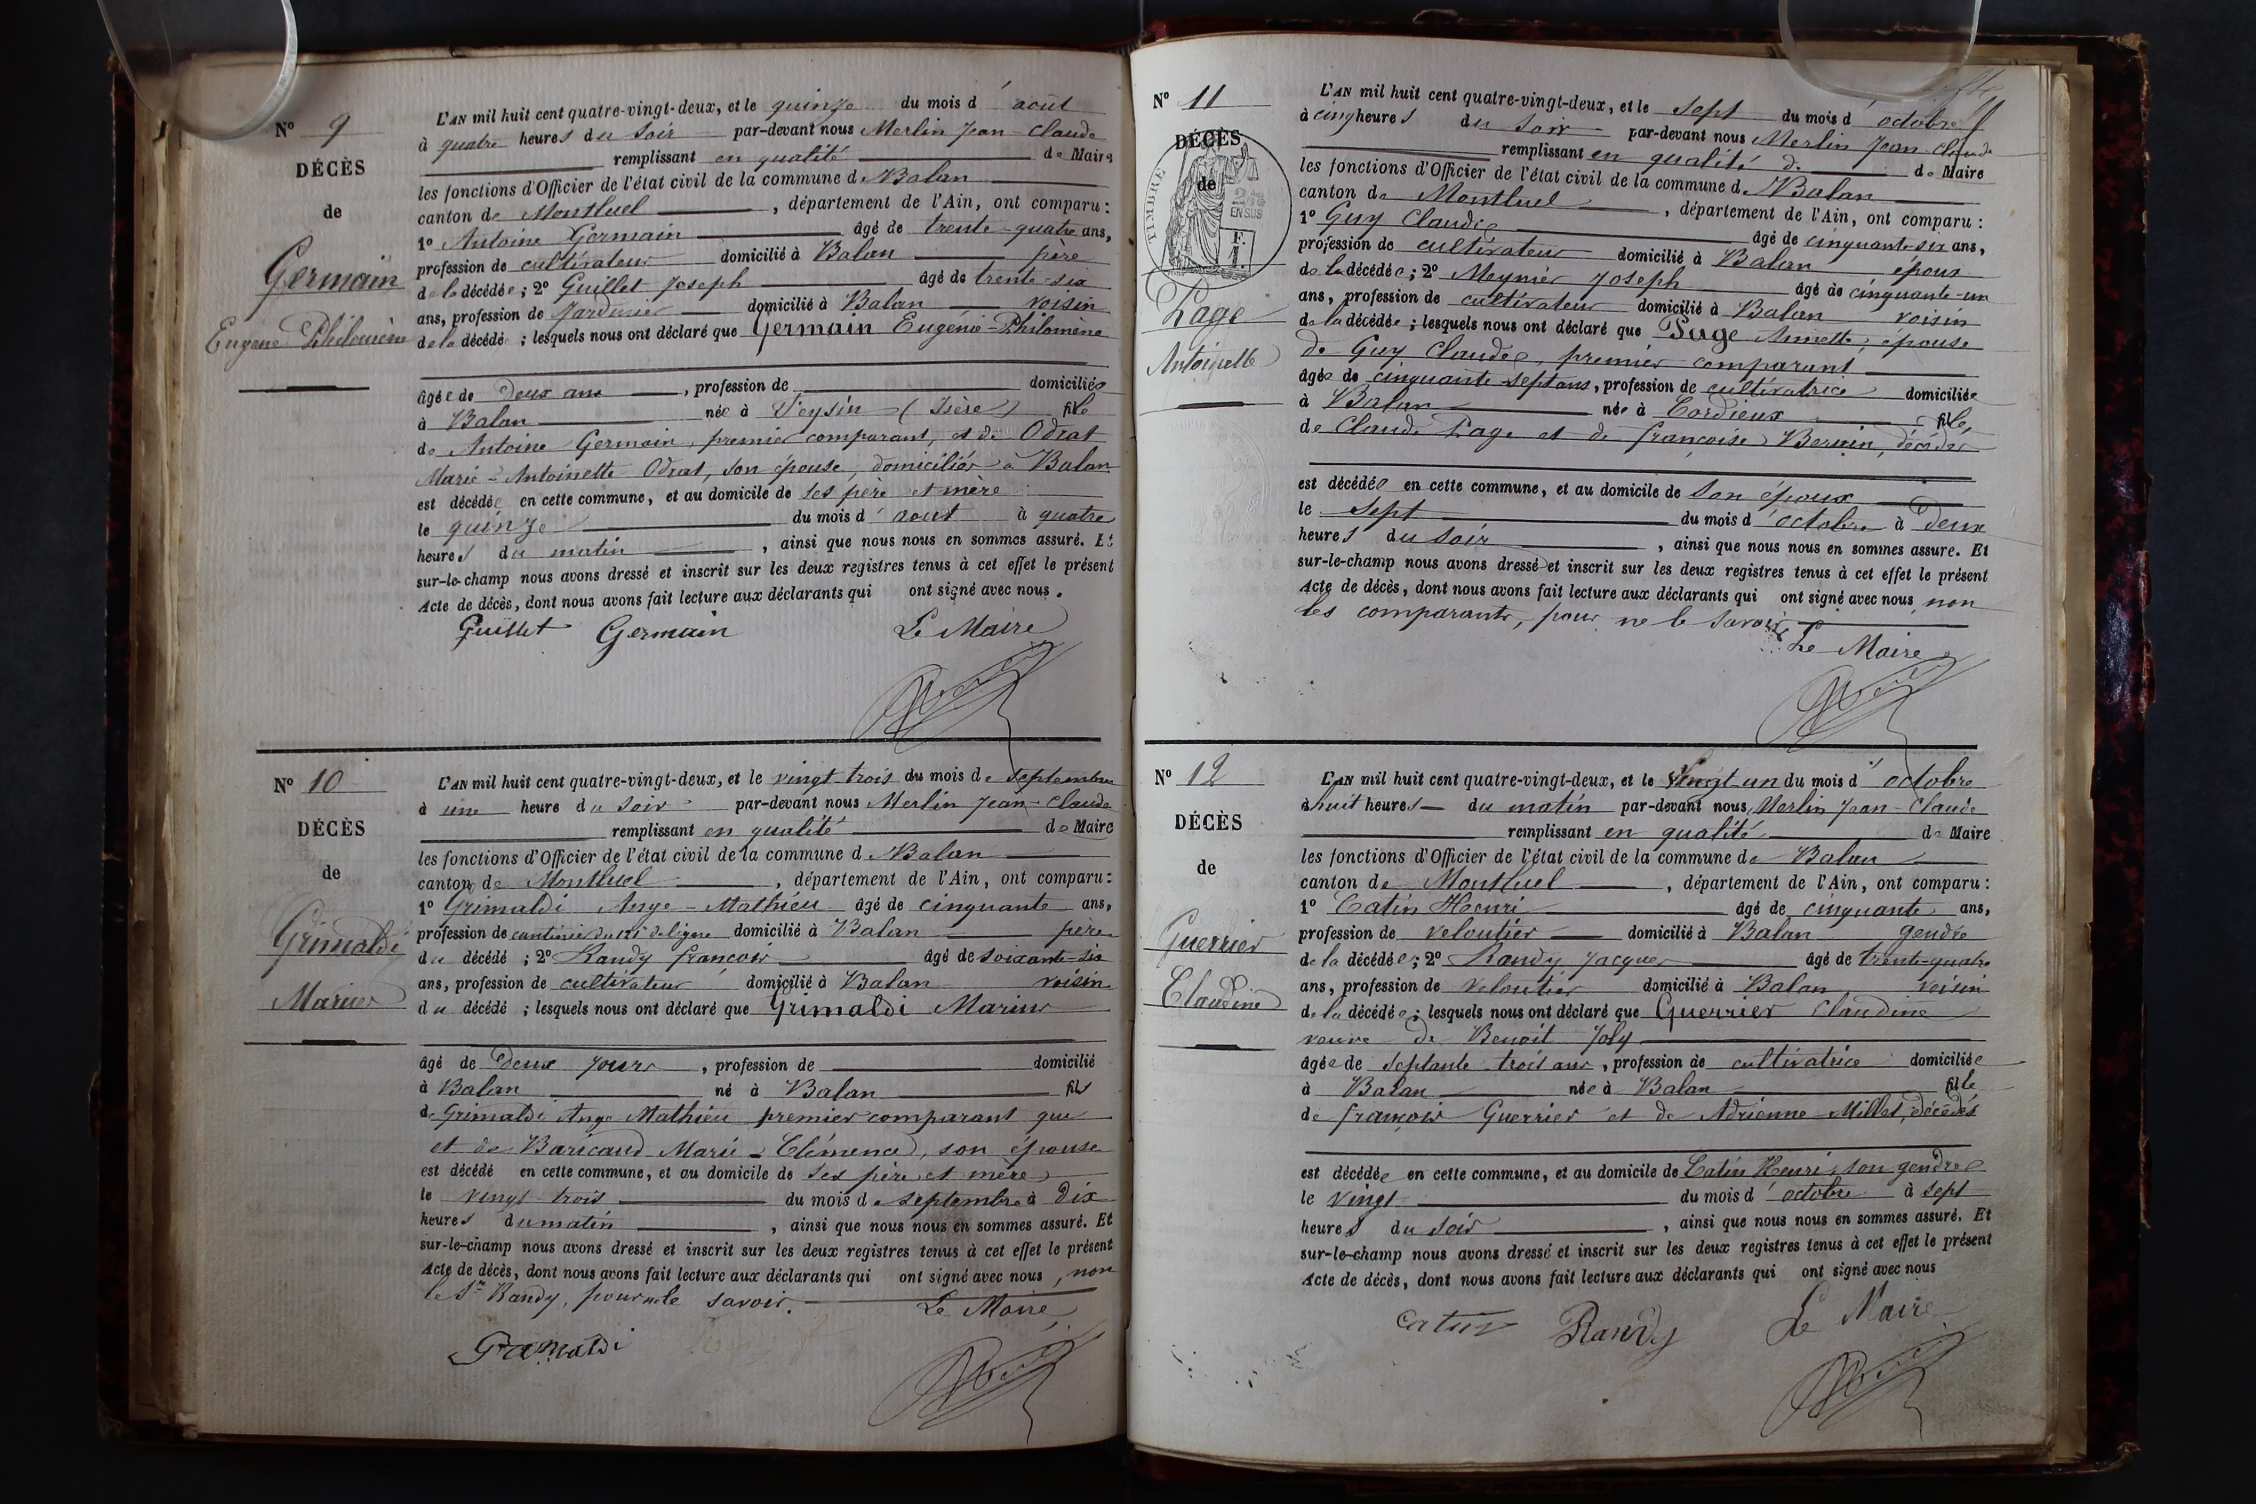 N° 9
DÉCÈS
de
Germain
Eugénie Philomène
L'AN mil huit cent quatre-vingt-deux, et le quinze du mois d' août
à quatre heures du soir par-devant nous Merlin Jean-Claude
remplissant en qualité de Maire
les fonctions d'Officier de l'état civil de la commune de Balan
canton de Montluel, département de l'Ain, ont comparu :
1° Antoine Germain âgé de trente-quatre ans,
profession de cultivateur domicilié à Balan père
de la décédée ; 2° Guillet Joseph âgé de trente-six
ans, profession de Jardinier domicilié à Balan voisin
de la décédé ; lesquels nous ont déclaré que Germain Eugénie-Philomène
âgée de deux ans, profession de domiciliée
à Balan née à Seysin (Isère) fille
de Antoine Germain, premier comparant, et de Odrat
Marie-Antoinette Odrat, son épouse, domiciliés à Balan
est décédée en cette commune, et au domicile de ses père et mère
le quinze du mois d' août à quatre
heures du matin, ainsi que nous nous en sommes assuré. Et
sur-le-champ nous avons dressé et inscrit sur les deux registres tenus à cet effet le présent
Acte de décès, dont nous avons fait lecture aux déclarants qui ont signé avec nous.
Guillet Germain Le Maire
N° 10
DÉCÈS
de
Grimaldi
Marius
L'AN mil huit cent quatre-vingt-deux, et le vingt trois du mois de septembre
à une heure du soir par-devant nous Merlin Jean-Claude
remplissant en qualité de Maire
les fonctions d'Officier de l'état civil de la commune de Balan
canton de Montluel, département de l'Ain, ont comparu :
1° Grimaldi Ange-Mathieu âgé de cinquante ans,
profession de cantinier du 121e de ligne domicilié à Balan père
du décédé ; 2° Randy françois âgé de soixante-six
ans, profession de cultivateur domicilié à Balan voisin
du décédé ; lesquels nous ont déclaré que Grimaldi Marius
âgé de Deux jours, profession de domicilié
à Balan né à Balan fils
de Grimaldi Ange Mathieu premier comparant que
et de Baricaud Marie-Clémence, son épouse
est décédé en cette commune, et au domicile de ses père et mère
le vingt trois du mois de septembre à dix
heures du matin, ainsi que nous nous en sommes assuré. Et
sur-le-champ nous avons dressé et inscrit sur les deux registres tenus à cet effet le présent
Acte de décès, dont nous avons fait lecture aux déclarants qui ont signé avec nous, non
le Sr Randy, pour ne le savoir. Le Maire
Gramaldi
N° 11
DÉCÈS
de
TIMBRE
2/10
EN SUS
F.
1.
Page
Antoinette
L'AN mil huit cent quatre-vingt-deux, et le sept du mois d' octobre
à cinq heures du soir par-devant nous Merlin Jean-Claude
remplissant en qualité de de Maire
les fonctions d'Officier de l'état civil de la commune de Balan
canton de Montluel, département de l'Ain, ont comparu :
1° Guy Claude âgé de cinquante-six ans,
profession de cultivateur domicilié à Balan époux
de la décédée ; 2° Meynier Joseph âgé de cinquante-un
ans, profession de cultivateur domicilié à Balan voisin
de la décédée ; lesquels nous ont déclaré que Page Annette, épouse
de Guy Claude, premier comparant
âgée de cinquante-sept ans, profession de cultivatrice domiciliée
à Balan née à Cordieux fille
de Claude Page et de françoise, décédés
est décédée en cette commune, et au domicile de son époux
le sept du mois d' octobre à deux
heures du soir, ainsi que nous nous en sommes assuré. Et
sur-le-champ nous avons dressé et inscrit sur les deux registres tenus à cet effet le présent
Acte de décès, dont nous avons fait lecture aux déclarants qui ont signé avec nous, non
les comparants, pour ne le savoir.
Le Maire
N° 12
DÉCÈS
de
Guerrier
Claudine
L'AN mil huit cent quatre-vingt-deux, et le Vingt-un du mois d' octobre
à huit heures du matin par-devant nous Merlin Jean-Claude
remplissant en qualité de Maire
les fonctions d'Officier de l'état civil de la commune de Balan
canton de Montluel, département de l'Ain, ont comparu :
1° Catin Henri âgé de cinquante ans,
profession de veloutier domicilié à Balan gendre
de la décédée ; 2° Randy Jacques âgé de trente-quatre
ans, profession de veloutier domicilié à Balan voisin
de la décédée ; lesquels nous ont déclaré que Guerrier Claudine
veuve de Benoît Joly
âgée de septante trois ans, profession de cultivatrice domiciliée
à Balan née à Balan fille
de françois Guerrier et de Adrienne Millet, décédés
est décédée en cette commune, et au domicile de Catin Henri, son gendre
le vingt du mois d' octobre à sept
heures du soir, ainsi que nous nous en sommes assuré. Et
sur-le-champ nous avons dressé et inscrit sur les deux registres tenus à cet effet le présent
Acte de décès, dont nous avons fait lecture aux déclarants qui ont signé avec nous
Catin Randy Le Maire